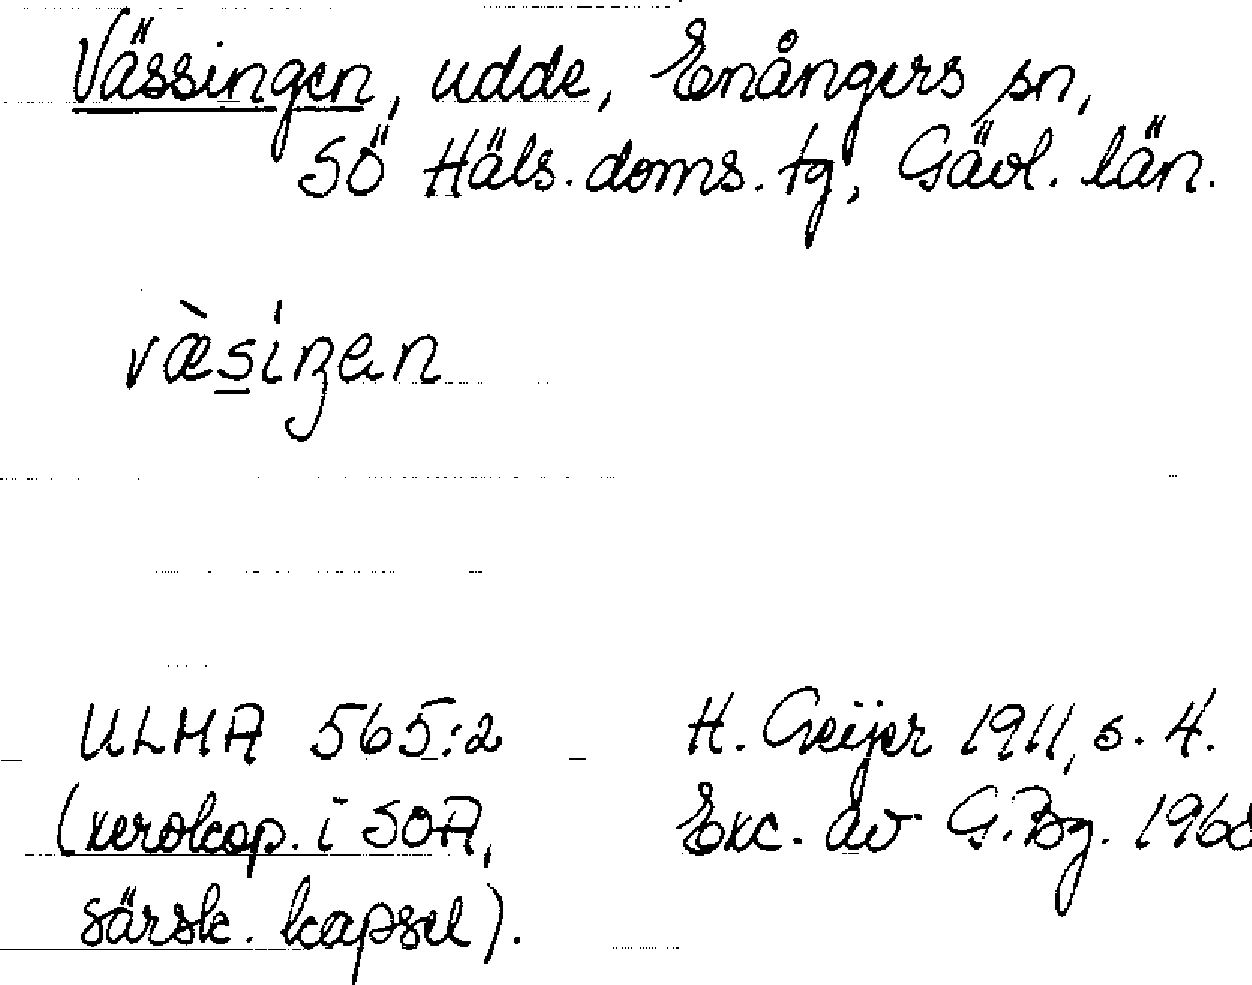 Vässingen, udde, Enångers sn,
SÖ Häls. doms. tg, Gävl. län.
væ̀siŋen
ULMA 565:2
H. Geijer 1911, s. 4.
(xerokop. i SOA,
Exc. av G.Bg. 1968
särsk. kapsel).